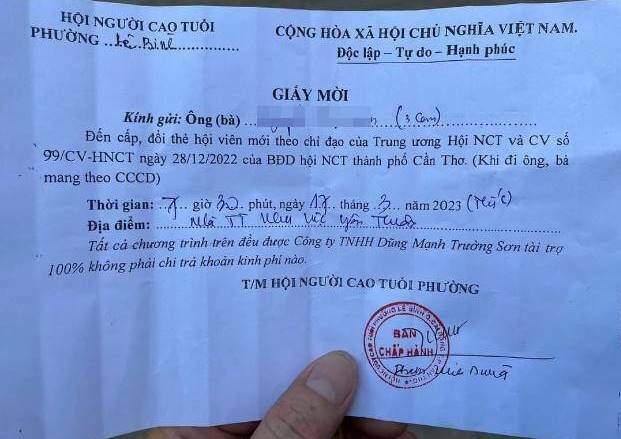 HỘI NGƯỜI CAO TUỔI
PHƯỜNG ..Lê Bình
CỘNG HÒA XÃ HỘI CHỦ NGHĨA VIỆT NAM.
Độc lập - Tự do - Hạnh phúc
GIẤY MỜI
Kính gửi: Ông (bà)
Đến cấp, đổi thẻ hội viên mới theo chỉ đạo của Trung ương Hội NCT và CV số
99/CV-HNCT ngày 28/12/2022 của BĐD hội NCT thành phố Cần Thơ. (Khi đi ông, bà
mang theo CCCD)
Thời gian: ..7.. giờ 30.. phút, ngày 17.. tháng .3... năm 2023
Địa điểm: Nhà TT Khu Vực Yên
Tất cả chương trình trên đều được Công ty TNHH Dũng Mạnh Trường Sơn tài trợ
100% không phải chi trả khoản kinh phí nào.
T/M HỘI NGƯỜI CAO TUỔI PHƯỜNG
BAN
CHẤP HÀNH